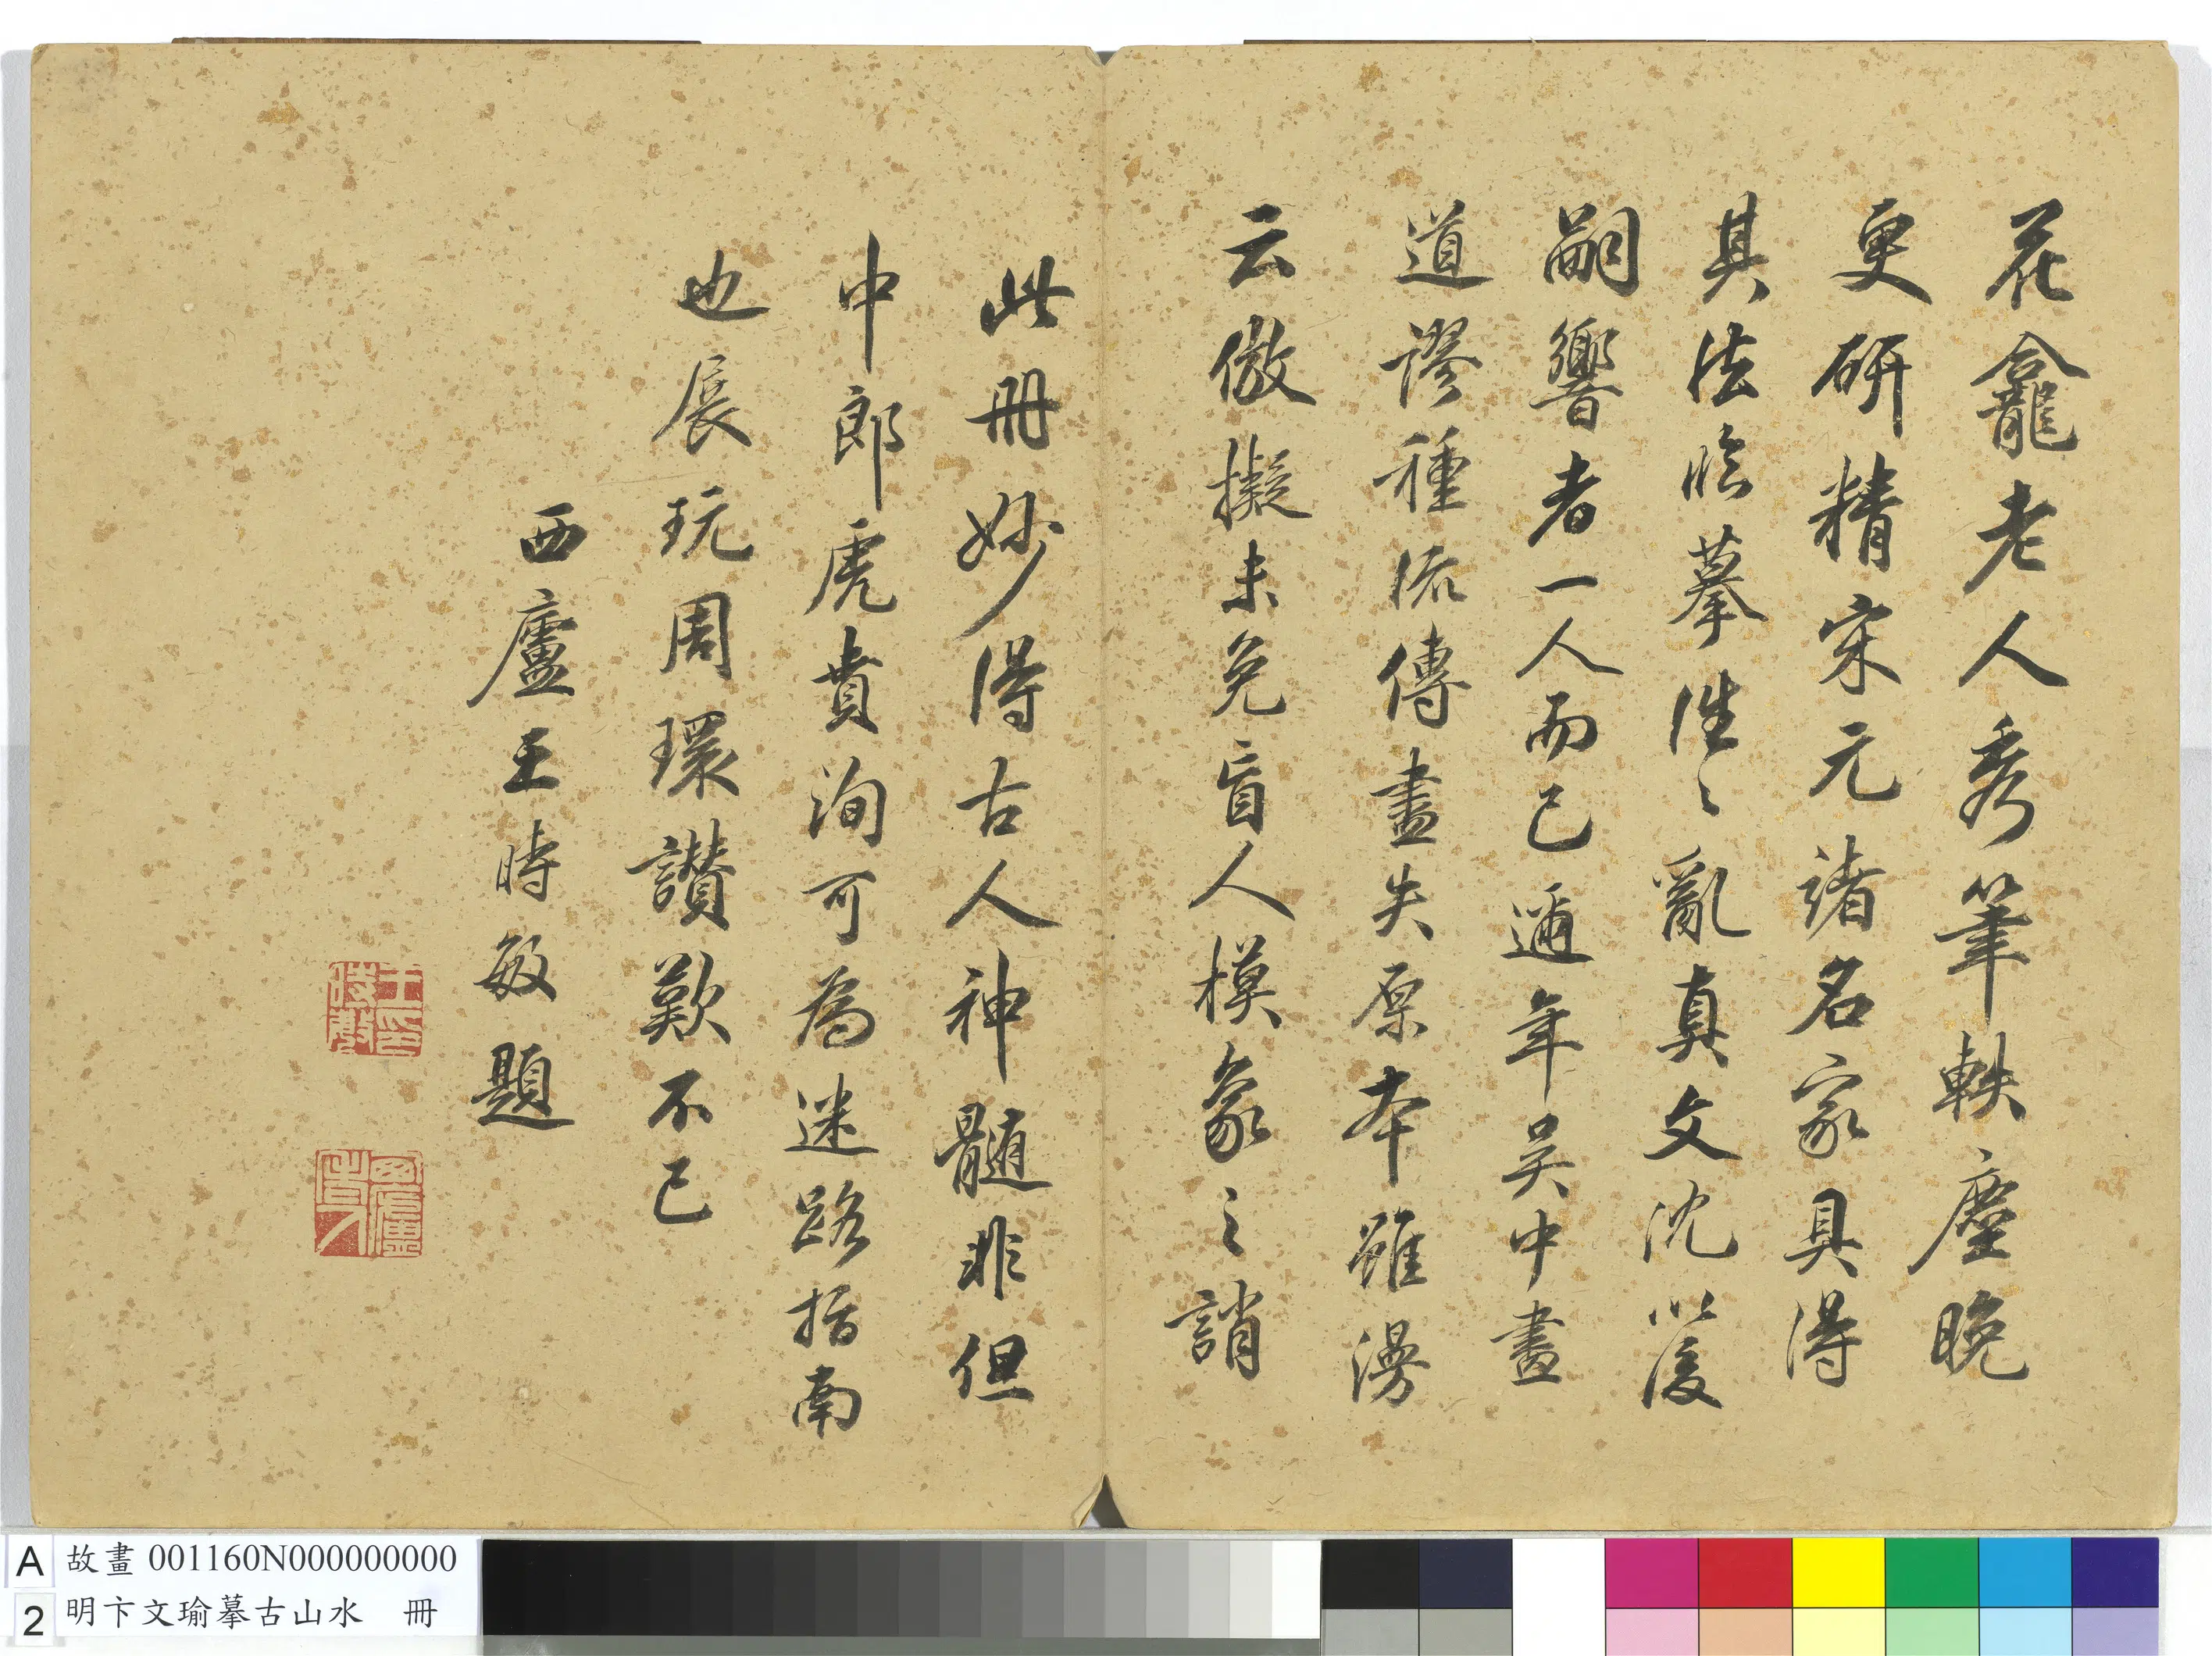 花龕老人秀筆軼塵晚
更研精宋元諸名家具得
其法臨摹往〻亂真文沈以後
嗣響者一人而已邇年吳中畫
道謬種流傳盡失原本雖漫
云倣擬未免盲人模象之誚
此冊妙得古人神髓非但
中郎虎賁洵可為迷路指南
也展玩周環讚歎不已
西廬王時敏題
王時敏印
西廬老人
A 故畫 001160N000000000
2 明卞文瑜摹古山水 冊